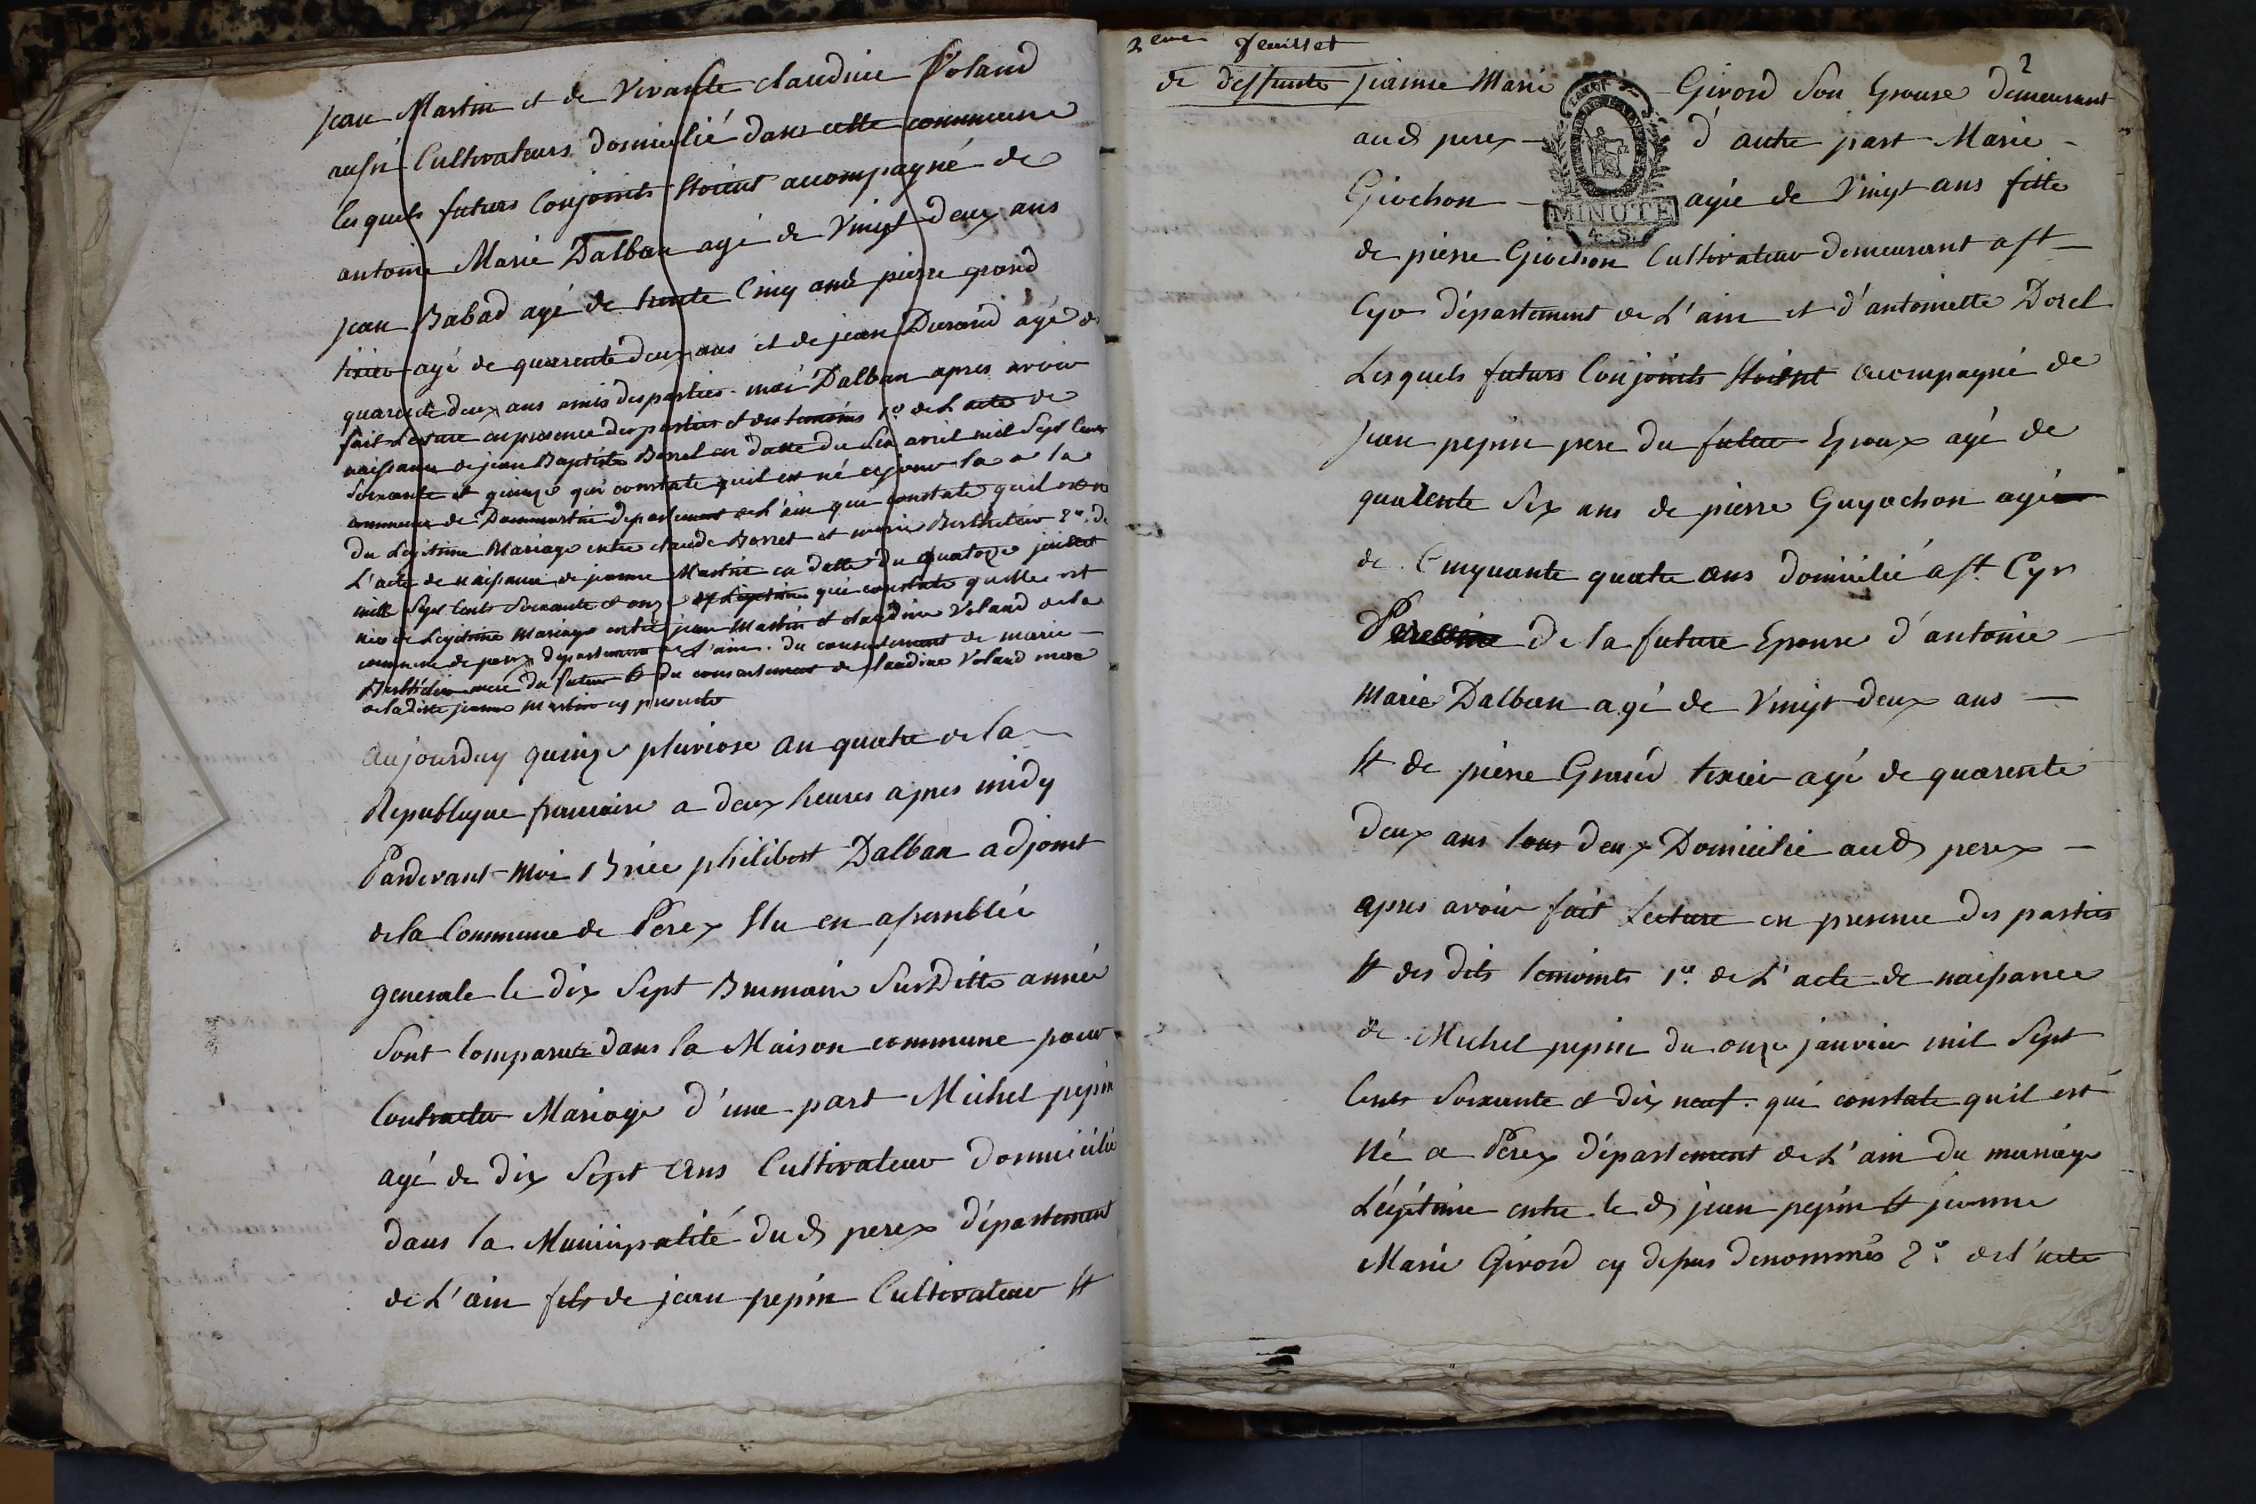 jean Martin et de Vivante claudine Voland
aussi Cultivateurs domicilié dans cette commune
lesquels futurs Conjoints Etoient accompagné de
antoine Marie Dalban agé de Vingt deux ans
jean Babad agé de trente Cinq ans pierre grand
tixier agé de quarente deux ans et de jean Durand agé de
quarente deux ans amis des parties moi Dalban apres avoir
fait Lecture en presence des parties et des temoins 1º de L'acte de
naissance de jean Baptiste Borret en datte du Six avril mil Sept Cents
Soixante et quinze qui constate quil est né ce jour la a la
commune de Dommartin departement de L'ain qui constate quil est né
du Legitime Mariage entre claude Borret et marie Berthelier 2º. de
L'acte de naissance de jeanne Martin en datte du quatorze juillet
mille Sept Cents Soixante et onze qui constate quelle est
née de Legitime Mariage entre jean Martin et claudine Voland de la
commune de perex departement de L'ain. du consentement de marie
Berthelier mere du futur & du consentement de claudine Voland mere
de la ditte jeanne Martin cy presente
aujourduy quinze pluviose an quatre de la
Republique francaise a deux heures apres midy
Pardevant moi Brice philibert Dalban adjoint
de la Commune de Perex Elu en assemblée
generale le dix Sept Brumaire Sus Ditte année
Sont Comparuts dans la Maison commune pour
Contracter Mariage d'une part Michel pepin
agé de dix Sept ans Cultivateur domicilié
dans la Municipalité dud perex département
de L'ain fils de jean pepin Cultivateur Et
2eme feuillet
2
de deffunte jeanne Marie Girord Son Epouse demeurant
aud perex d'autre part Marie
Giochon agée de Vingt ans fille
MINUTE
4. S.
de pierre Giochon Cultivateur demeurant a St
Cyr département de L'ain et d'antoinette Dorel
Lesquels futurs Conjoints Etoient accompagné de
jean pepin pere du futur Epoux agé de
quarente Six ans de pierre Guyochon agé
de Cinquante quatre ans domicilié a St. Cyr
de la future Epouse d'antoine
Marie Dalban agé de Vingt deux ans
Et de pierre Grand tixier agé de quarente
deux ans tous deux Domicilié aud perex
apres avoir fait Lecture en presence des parties
Et des dits temoints 1º. de L'acte de naissance
de Michel pepin du onze janvier mil Sept
Cents Soixante et dix neuf. qui constate quil est
Né a Perex département de L'ain du mariage
Légitime entre le d jean pepin Et jeanne
Marie Girord cy dessus denommés 2º. de l'acte